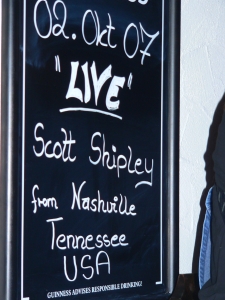 02. Okt 07
"LIVE"
Scott Shipley
from Nashville
Tennessee
USA
GUINNESS ADVISES RESPONSIBLE DRINKING!